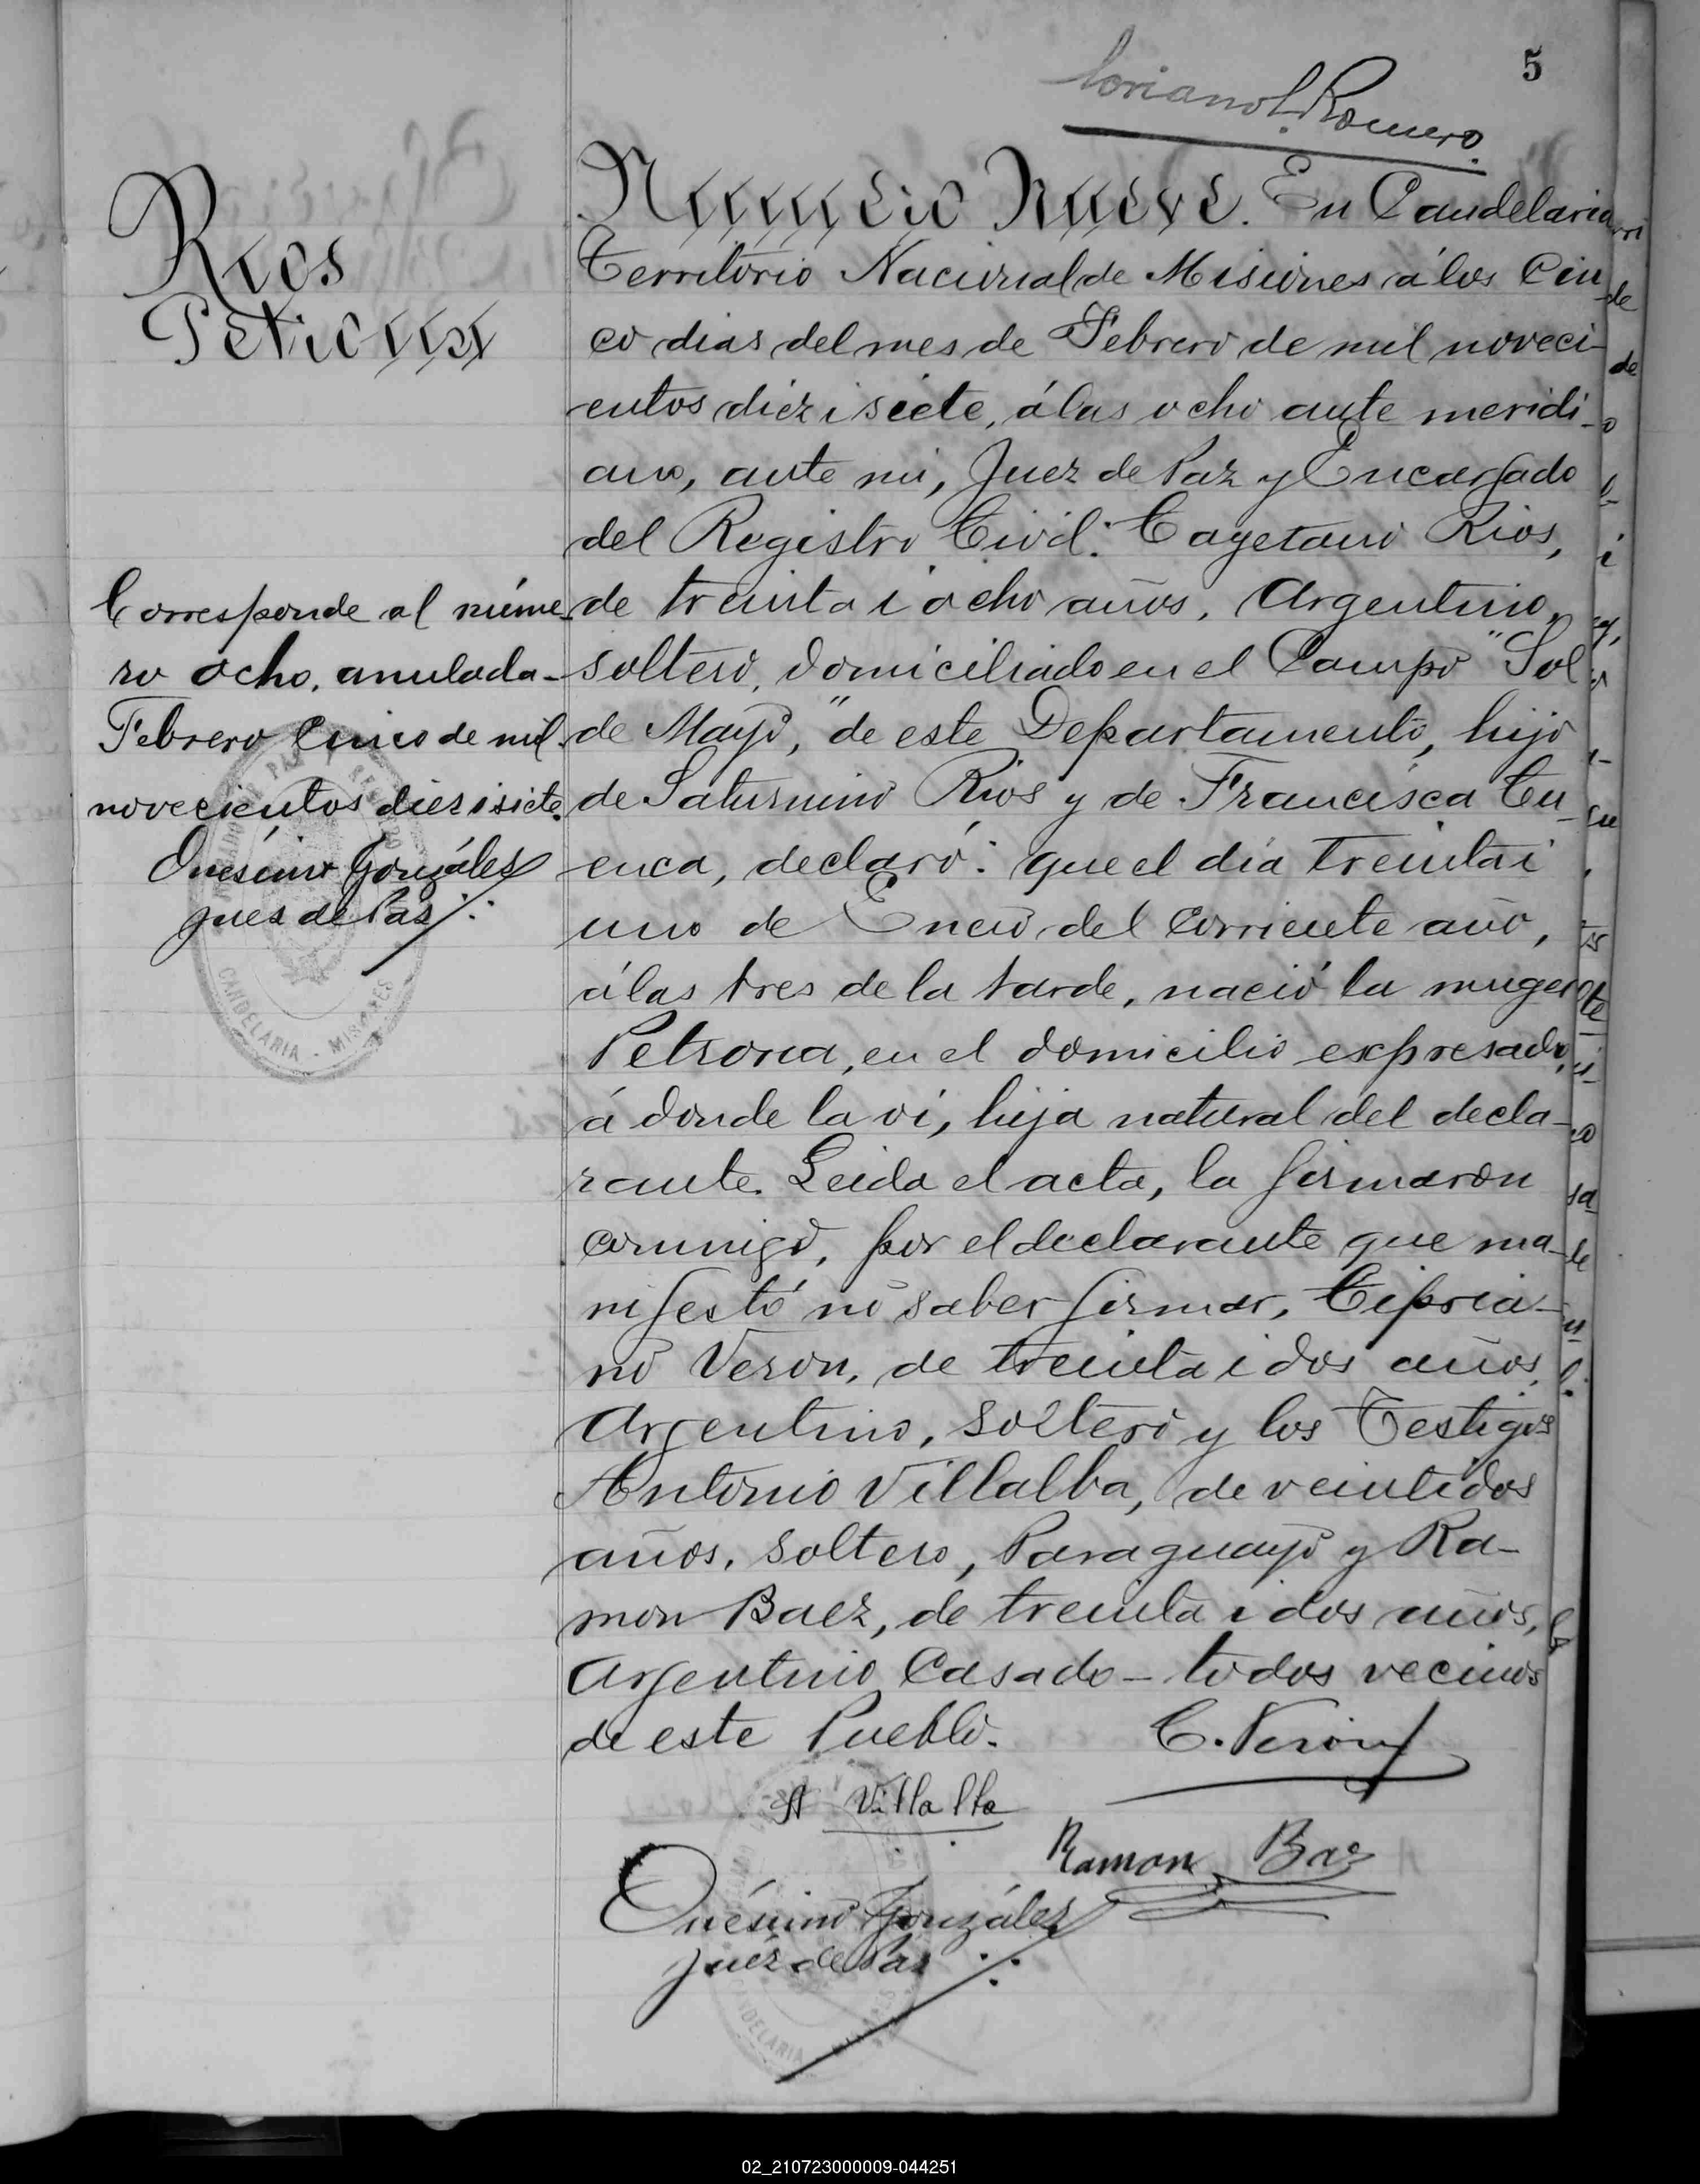 5
Soriano L. Romero
Rios
Petrona
Corresponde al núme-
ro ocho, anulada-
Febrero Cinco de mil
novecientos diez i siete.
Onésimo González
Juez de Paz
CANDELARIA - MISIONES
Número Nueve. En Candelaria
Territorio Nacional de Misiones á los Cin
co dias del mes de Febrero de mil noveci-
entos diéz i siete, á las ocho ante meridi-
ano, ante mi, Juez de Paz y Encargado
del Registro Civil: Cayetano Rios,
de treinta i ocho años, Argentino,
soltero, domiciliado en el Campo "Sol
de Mayo," de este Departamento, hijo
de Saturnino Rios y de Francisca Cu-
enca, declaró: que el dia treinta i
uno de Enero del corriente año,
á las tres de la tarde, nació la muger
Petrona, en el domicilio expresado,
á donde la ví, hija natural del decla-
rante. Leida el acta, la firmaron
conmigo, por el declarante que ma-
nifestó no saber firmar, Cipria-
no Veron, de treinta i dos años,
Argentino, soltero y los Testigos
Antonio Villalba, de veintidos
años, soltero, Paraguayo y Ra-
mon Baez, de treinta i dos años,
Argentino Casado - todos vecinos
de este Pueblo.
C. Veron
A Villalba
Ramon Baez
Onésimo González
Juéz de Paz
02_210723000009-044251